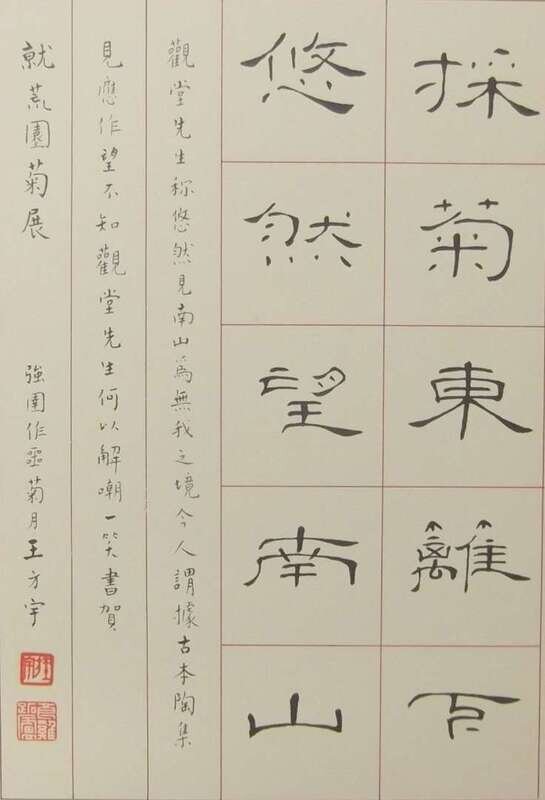 採菊東籬下
悠然望南山
觀堂先生称悠然見南山為無我之境今人謂據古本陶集
見應作望不知觀堂先生何以解嘲一笑書賀
就荒園菊展
強圉作噩菊月王方宇